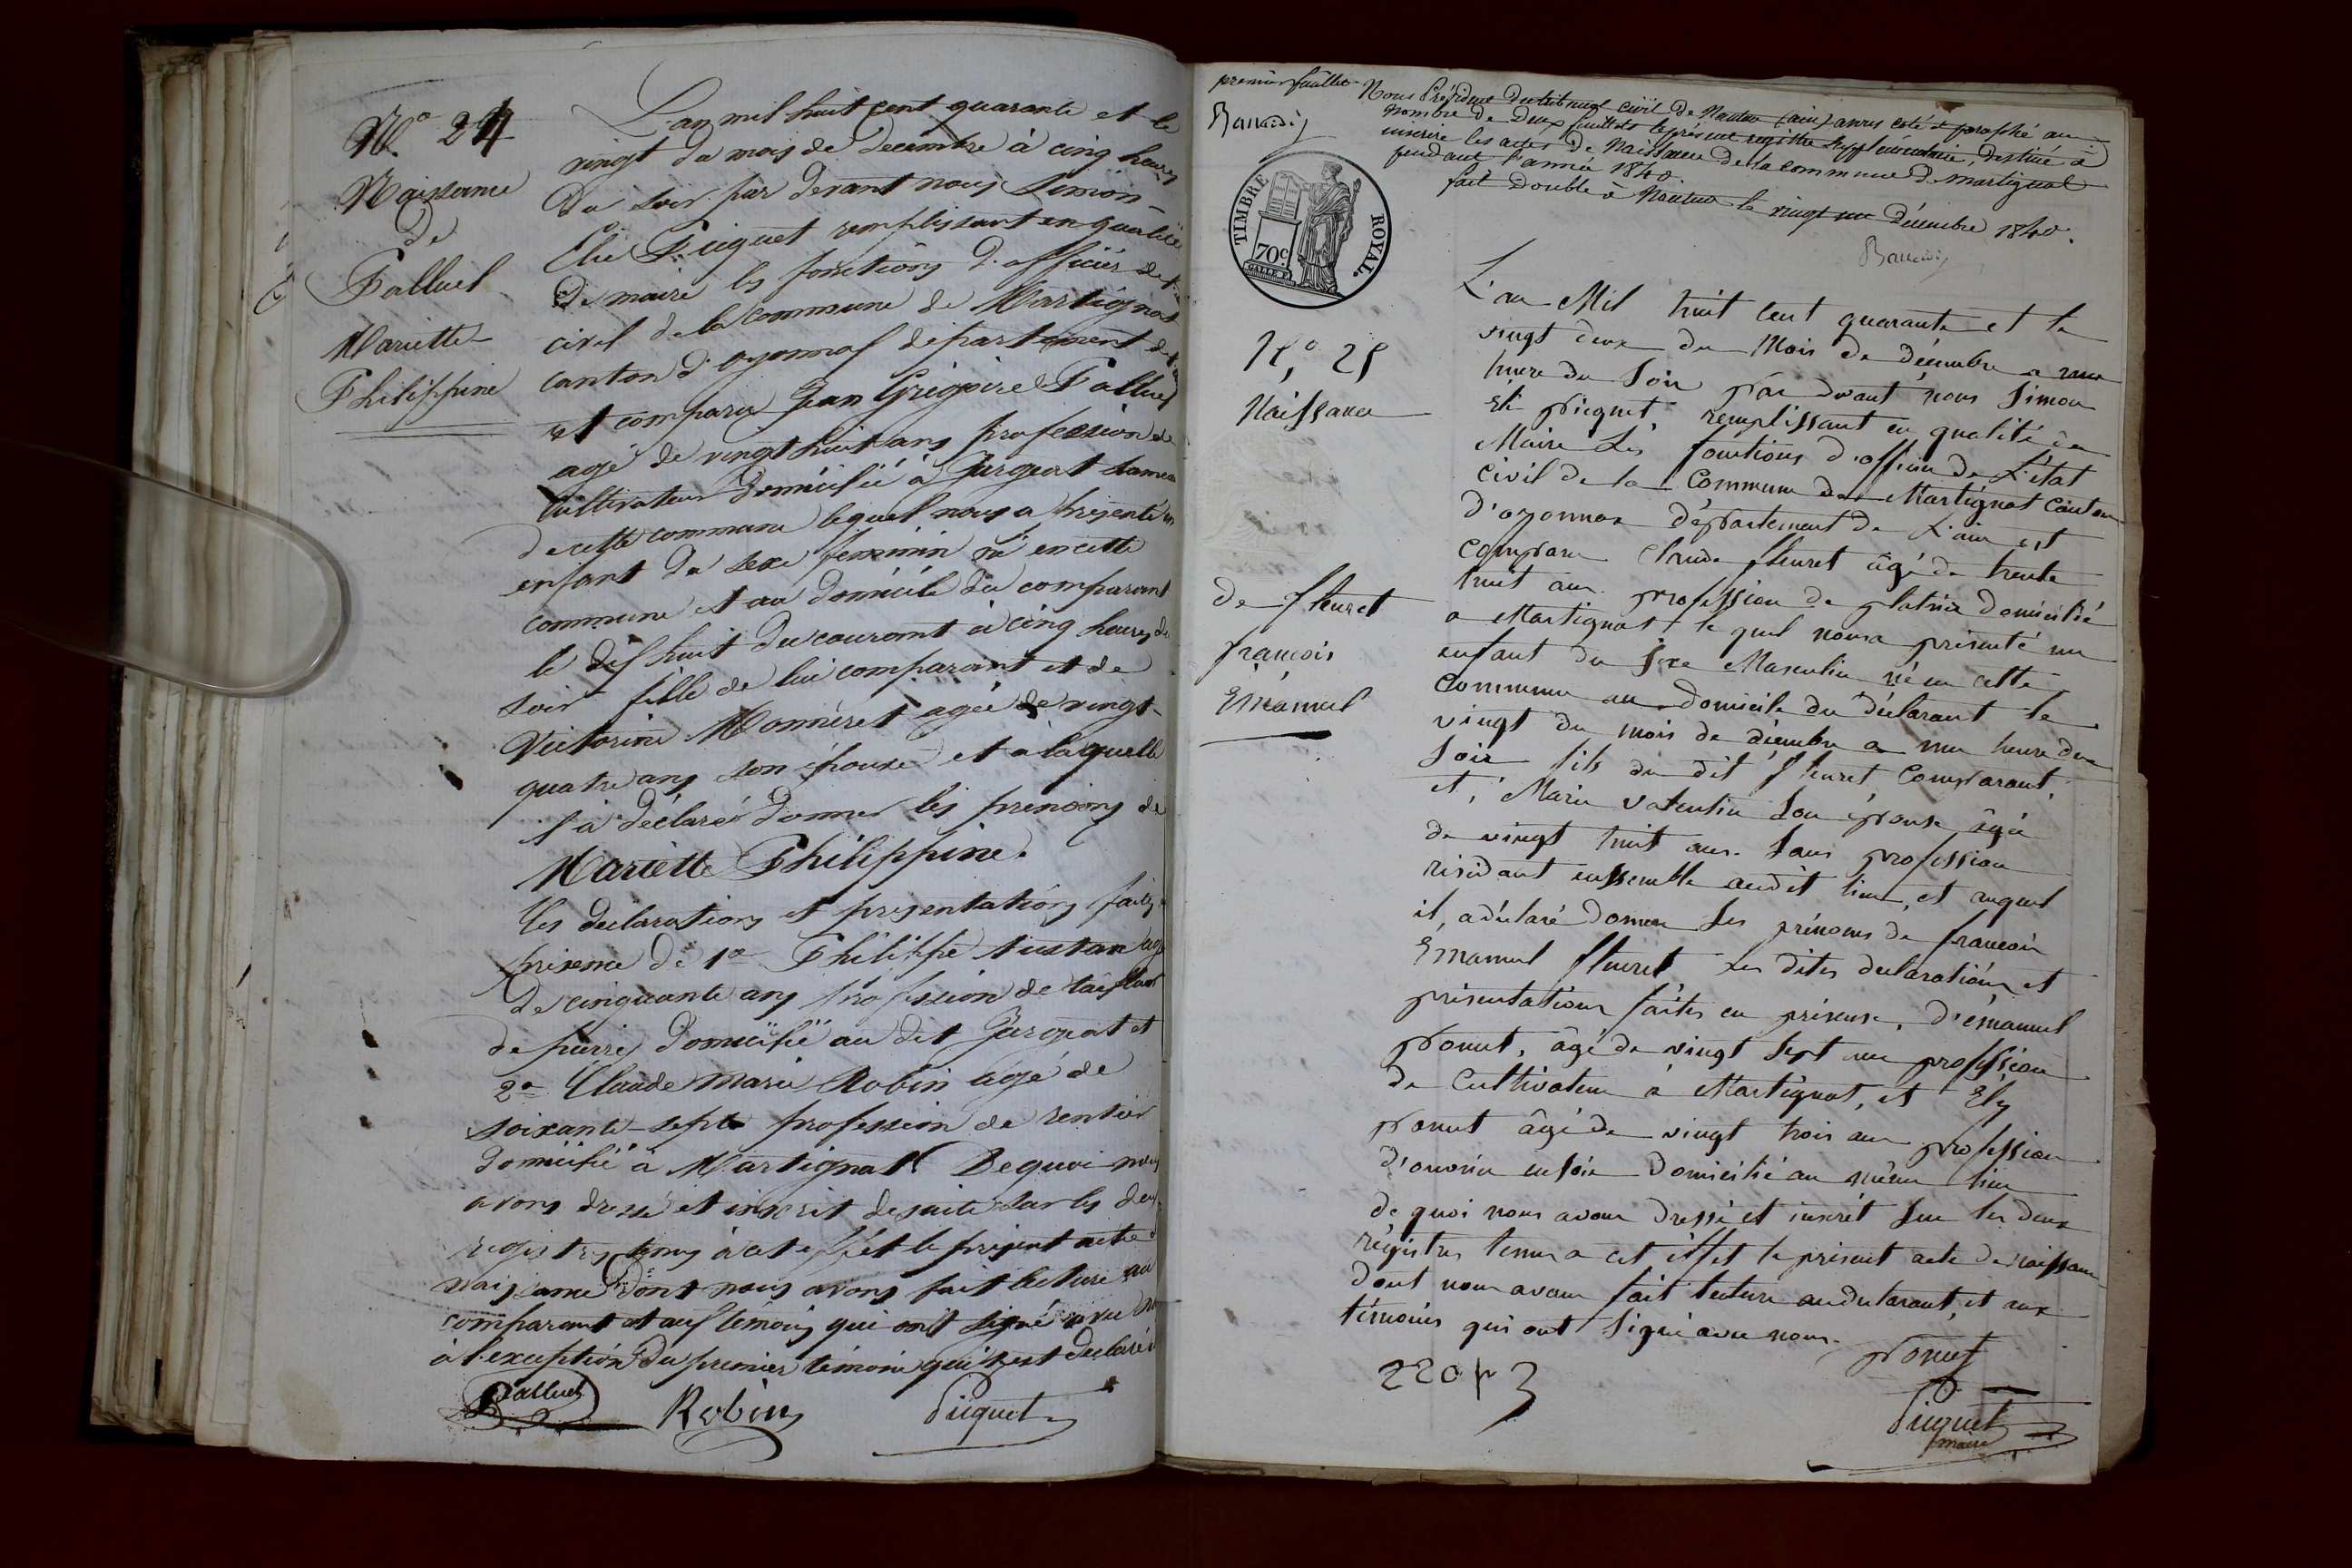 N.° 24
Naissance
de
Palluel
Mariette
Philippine
L'an mil huit cent quarante et le
vingt du mois de decembre à cinq heures
du soir par devant nous Simon
Elie Picquet remplissant en qualité
de maire les fonctions d'officier de
civil de la commune de Martignat
canton d'oyonnas département de
est comparu Jean Grégoire Palluel
agé de vingt huit ans profession de
cultivateur domicilié à Jurgeat hameau
de cette commune lequel nous a présenté un
enfant du sexe feminin né en cette
commune et au domicile du comparant
le dix huit du courant à cinq heures du
soir fille de lui comparant et de
Victorine Monneret agée de vingt
quatre ans son épouse et a laquelle
il a déclaré donner les prenoms de
Mariette Philippine.
les declarations et presentations faites
presence de 1° Philippe tustan agé
de cinquante ans profession de tailleur
de pierres domicilié au dit Jurgeat et
2° Claude Marie Robin agé de
soixante-sept profession de rentier
domicilié à Martignat De quoi nous
avons dressé et inscrit de suite sur les deux
registres tenus à cet effet le present acte d
naissance dont nous avons fait lecture au
comparant et aux témoins qui ont signé avec
à l'exception du premier témoin qui s'est déclaré
Palluel Robin Picquet
premier feuillet
Nous Président du tribunal civil de Nantua (ain) avons coté et paraphé au
nombre de deux feuillets le présent registre supplémentaire, destiné à
inscrire les actes de Naissance de la commune de martignat
pendant l'année 1840.
fait double à Nantua le vingt un décembre 1840.
TIMBRE ROYAL.
70c.
N.° 25
Naissance
de fleuret
françois
Emanuel
L'an Mil huit cent quarante et le
vingt deux du Mois de décembre a une
heure du Soir par devant nous Simon
Eli picquet, remplissant en qualité de
Maire Les fonctions d'officier de L'état
civil de la Commune de Martignat Canton
d'oyonnax département de L'ain est
comparu claude fleuret âgé de trente
huit ans profession de platrier domicilié
a Martignat le quel nous a présenté un
enfant du Sexe Masculin né en cette
commune au domicile du déclarant le
vingt du mois de décembre a une heure du
Soir fils du dit fleuret comparant,
et, Marie valentin Son épouse âgée
de vingt huit ans. Sans profession
résidant enssemble audit lieu, et auquel
il, a déclaré donner Les prénoms de francois
Emanuel fleuret Les dites declarations et
présentations faites en présence, d'émanuel
ponut, âgé de vingt Sept ans profession
de Cultivateur à Martignat, et Ely
ponut âgé de vingt trois ans profession
d'ouvrier en soie domicilié au même lieu
de quoi nous avons dressé et inscrit Sur les deux
régistres tenus a cet éffet le présent acte de naissance
dont nous avons fait lecture au déclarant, et aux
témoins qui ont Signé avec nous.
ponut
Picquet
maire